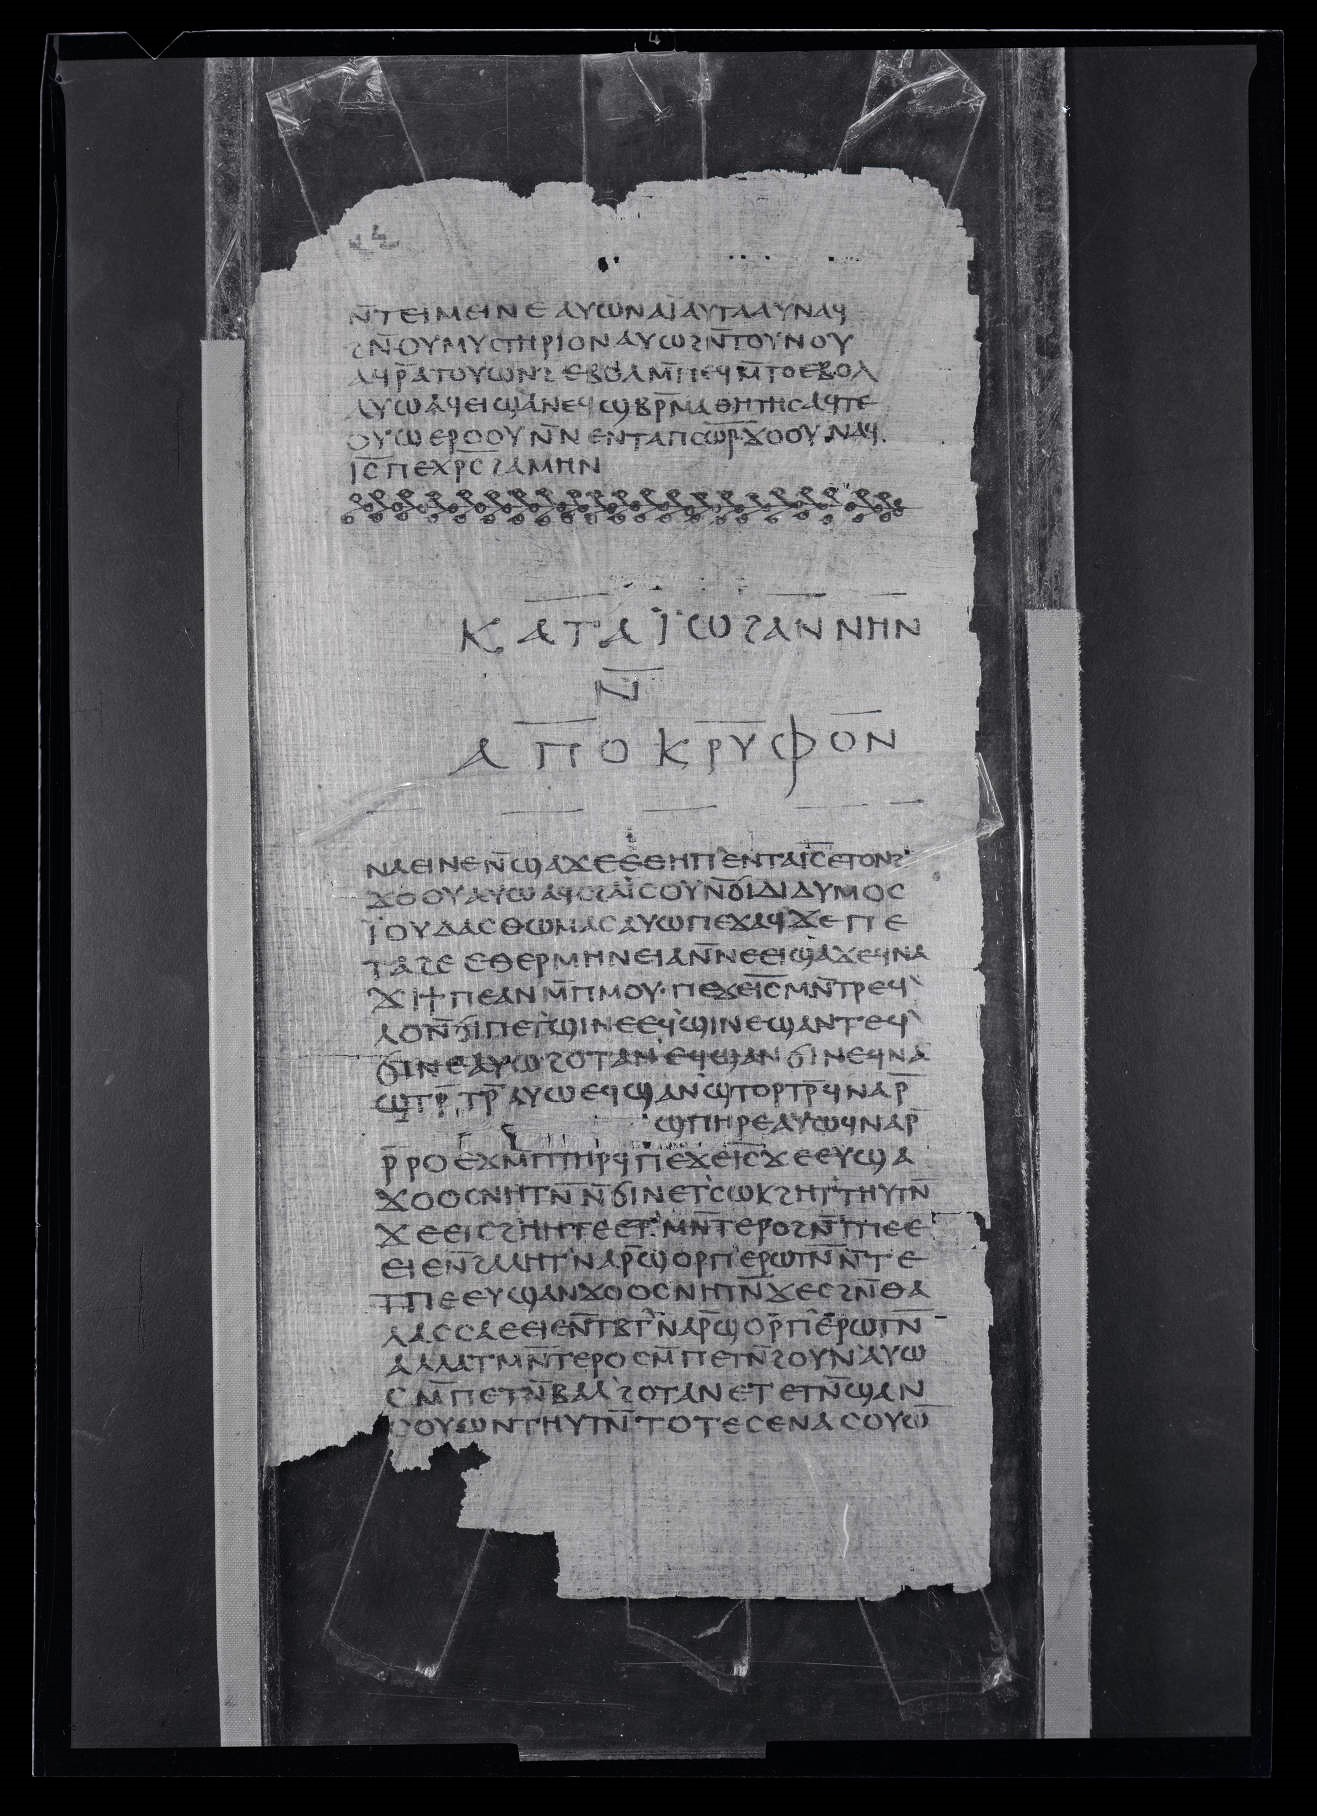 4
ⲛ̄ⲧⲉⲓⲙⲉⲓⲛⲉ ⲁⲩⲱ ⲛⲁⲓ̈ ⲁⲩⲧⲁⲁⲩ ⲛⲁϥ
ϩⲛ̄ ⲟⲩⲙⲩⲥⲧⲏⲣⲓⲟⲛ ⲁⲩⲱ ϩⲛ̄ ⲧⲟⲩⲛⲟⲩ
ⲁϥⲣ̄ ⲁⲧⲟⲩⲱⲛϩ ⲉⲃⲟⲗ ⲙ̄ⲡⲉϥⲙ̄ⲧⲟ ⲉⲃⲟⲗ
ⲁⲩⲱ ⲁϥⲉⲓ ϣⲁ ⲛⲉϥϣⲃⲣ̄ⲙⲁⲑⲏⲧⲏⲥ ⲁϥⲧⲉ
ⲟⲩⲱ ⲉⲣⲟⲟⲩ ⲛ̄ⲛⲉⲛⲧⲁ ⲡⲥⲱ̄ⲣ̄ ϫⲟⲟⲩ ⲛⲁϥ
ⲓ̄ⲥ̄ ⲡⲉⲭ̄ⲣ̄ⲥ̄ ϩⲁⲙⲏⲛ
ⲕⲁⲧⲁ ⲓ̈ⲱϩⲁⲛⲛⲏⲛ
ⲛ̄
ⲁⲡⲟⲕⲣⲩⲫⲟⲛ
ⲛⲁⲉⲓ ⲛⲉ ⲛ̄ϣⲁϫⲉ ⲉⲑⲏⲡ ⲉⲛⲧⲁ ⲓ̄ⲥ̄ ⲉⲧⲟⲛϩ
ϫⲟⲟⲩ ⲁⲩⲱ ⲁϥⲥϩⲁⲓ̈ⲥⲟⲩ ⲛ̄ϭⲓ ⲇⲓⲇⲩⲙⲟⲥ
ⲓ̈ⲟⲩⲇⲁⲥ ⲑⲱⲙⲁⲥ ⲁⲩⲱ ⲡⲉϫⲁϥ ϫⲉ ⲡⲉ
ⲧⲁϩⲉ ⲉⲑⲉⲣⲙⲏⲛⲉⲓⲁ ⲛ̄ⲛⲉⲉⲓϣⲁϫⲉ ϥⲛⲁ
ϫⲓ ϯⲡⲉ ⲁⲛ ⲙ̄ⲡⲙⲟⲩ· ⲡⲉϫⲉ ⲓ̄ⲥ̄ ⲙⲛ̄ⲧⲣⲉϥ
ⲗⲟ ⲛ̄ϭⲓ ⲡⲉⲧϣⲓⲛⲉ ⲉϥϣⲓⲛⲉ ϣⲁⲛⲧⲉϥ
ϭⲓⲛⲉ ⲁⲩⲱ ϩⲟⲧⲁⲛ ⲉϥϣⲁⲛϭⲓⲛⲉ ϥⲛⲁ
ϣⲧⲣ̄ⲧⲣ̄ ⲁⲩⲱ ⲉϥϣⲁⲛϣⲧⲟⲣⲧⲣ̄ ϥⲛⲁⲣ̄
ϣⲡⲏⲣⲉ ⲁⲩⲱ ϥⲛⲁⲣ̄
ⲣ̄ⲣⲟ ⲉϫⲙ̄ ⲡⲧⲏⲣϥ ⲡⲉϫⲉ ⲓ̄ⲥ̄ ϫⲉ ⲉⲩϣⲁ
ϫⲟⲟⲥ ⲛⲏⲧⲛ̄ ⲛ̄ϭⲓ ⲛⲉⲧⲥⲱⲕ ϩⲏⲧ ⲧⲏⲩⲧⲛ̄
ϫⲉ ⲉⲓⲥϩⲏⲏⲧⲉ ⲉⲧⲙⲛ̄ⲧⲉⲣⲟ ϩⲛ̄ ⲧⲡⲉ ⲉ
ⲉⲓⲉ ⲛ̄ϩⲁⲗⲏⲧ ⲛⲁⲣ̄ ϣⲟⲣⲡ ⲉⲣⲱⲧⲛ̄ ⲛ̄ⲧⲉ
ⲧⲡⲉ ⲉⲩϣⲁⲛϫⲟⲟⲥ ⲛⲏⲧⲛ̄ ϫⲉ ⲥϩⲛ̄ ⲑⲁ
ⲗⲁⲥⲥⲁ ⲉⲉⲓⲉ ⲛ̄ⲧⲃⲧ ⲛⲁⲣ̄ ϣⲟⲣⲡ ⲉⲣⲱⲧⲛ̄
ⲁⲗⲗⲁ ⲧⲙⲛ̄ⲧⲉⲣⲟ ⲥⲙ̄ⲡⲉⲧⲛ̄ϩⲟⲩⲛ ⲁⲩⲱ
ⲥⲙ̄ⲡⲉⲧⲛ̄ⲃⲁⲗ ϩⲟⲧⲁⲛ ⲉⲧⲉⲧⲛ̄ϣⲁⲛ
ⲥⲟⲩⲱⲛ ⲧⲏⲩⲧⲛ̄ ⲧⲟⲧⲉ ⲥⲉⲛⲁⲥⲟⲩⲱ̄